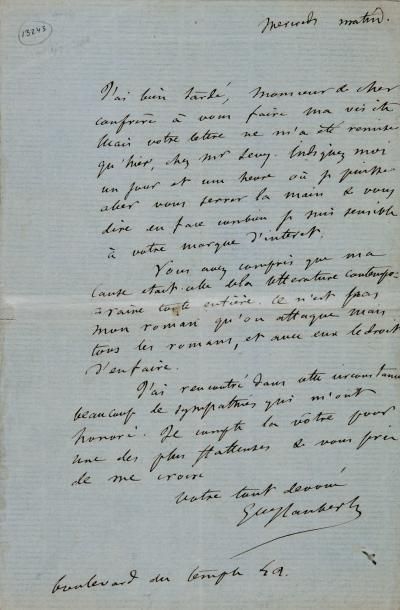 13243
Mercredi matin.
J'ai bien tardé, Monsieur & cher
confrère à vous faire ma visite
Mais votre lettre ne m'a été remise
qu'hier, chez mr Levy. Indiquez moi
un jour et une heure où je puisse
aller vous serrer la main & vous
dire en face combien je suis sensible
à votre marque d'intérêt.
Vous avez compris que ma
cause était celle de la littérature contempo-
raine toute entière. Ce n'est pas
mon roman qu'on attaque mais
tous les romans, et avec eux le droit
d'en faire.
J'ai rencontré dans cette circonstance
beaucoup de sympathies qui m'ont
honoré. Je compte la vôtre pour
une des plus flatteuses & vous prie
de me croire
votre tout dévoué
Gve Flaubert
boulevard du temple 42.